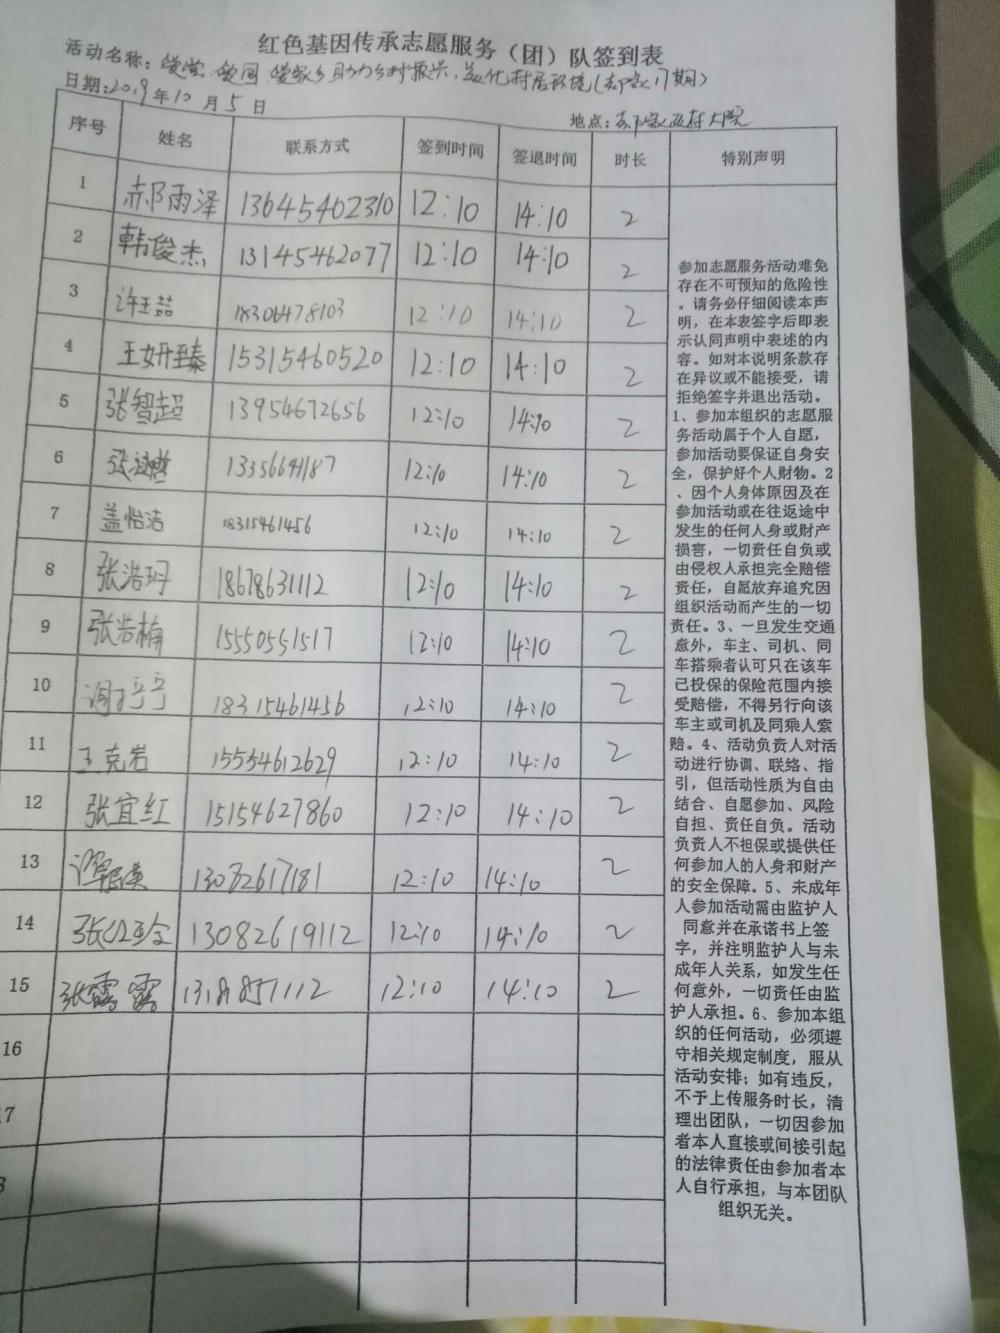 红色基因传承志愿服务（团）队签到表
活动名称：爱党、爱国、爱家乡助力乡村振兴，美化村居环境（郝家17期）
日期：2019年10月5日
地点：郝家政府大院
序号 姓名 联系方式 签到时间 签退时间 时长 特别声明
1 郝雨泽 13645402310 12:10 14:10 2
2 韩俊杰 13145462077 12:10 14:10 2
3 许王喆 18306478103 12:10 14:10 2
4 王妍臻 15315460520 12:10 14:10 2
5 张智超 13954672656 12:10 14:10 2
6 张 13356641187 12:10 14:10 2
7 盖怡洁 18315461456 12:10 14:10 2
8 张浩玥 18678631112 12:10 14:10 2
9 张浩楠 15550551517 12:10 14:10 2
10 18315461456 12:10 14:10 2
11 王克岩 15554612629 12:10 14:10 2
12 张宜红 15154627860 12:10 14:10 2
13 13082617181 12:10 14:10 2
14 张 13082619112 12:10 14:10 2
15 张露露 13181851112 12:10 14:10 2
16
参加志愿服务活动难免
存在不可预知的危险性
。请务必仔细阅读本声
明，在本表签字后即表
示认同声明中表述的内
容。如对本说明条款存
在异议或不能接受，请
拒绝签字并退出活动。
1、参加本组织的志愿服
务活动属于个人自愿，
参加活动要保证自身安
全，保护好个人财物。2
、因个人身体原因及在
参加活动或在往返途中
发生的任何人身或财产
损害，一切责任自负或
由侵权人承担完全赔偿
责任，自愿放弃追究因
组织活动而产生的一切
责任。3、一旦发生交通
意外，车主、司机、同
车搭乘者认可只在该车
已投保的保险范围内接
受赔偿，不得另行向该
车主或司机及同乘人索
赔。4、活动负责人对活
动进行协调、联络、指
引，但活动性质为自由
结合、自愿参加、风险
自担、责任自负。活动
负责人不担保或提供任
何参加人的人身和财产
的安全保障。5、未成年
人参加活动需由监护人
同意并在承诺书上签
字，并注明监护人与未
成年人关系，如发生任
何意外，一切责任由监
护人承担。6、参加本组
织的任何活动，必须遵
守相关规定制度，服从
活动安排；如有违反，
不予上传服务时长，清
理出团队，一切因参加
者本人直接或间接引起
的法律责任由参加者本
人自行承担，与本团队
组织无关。